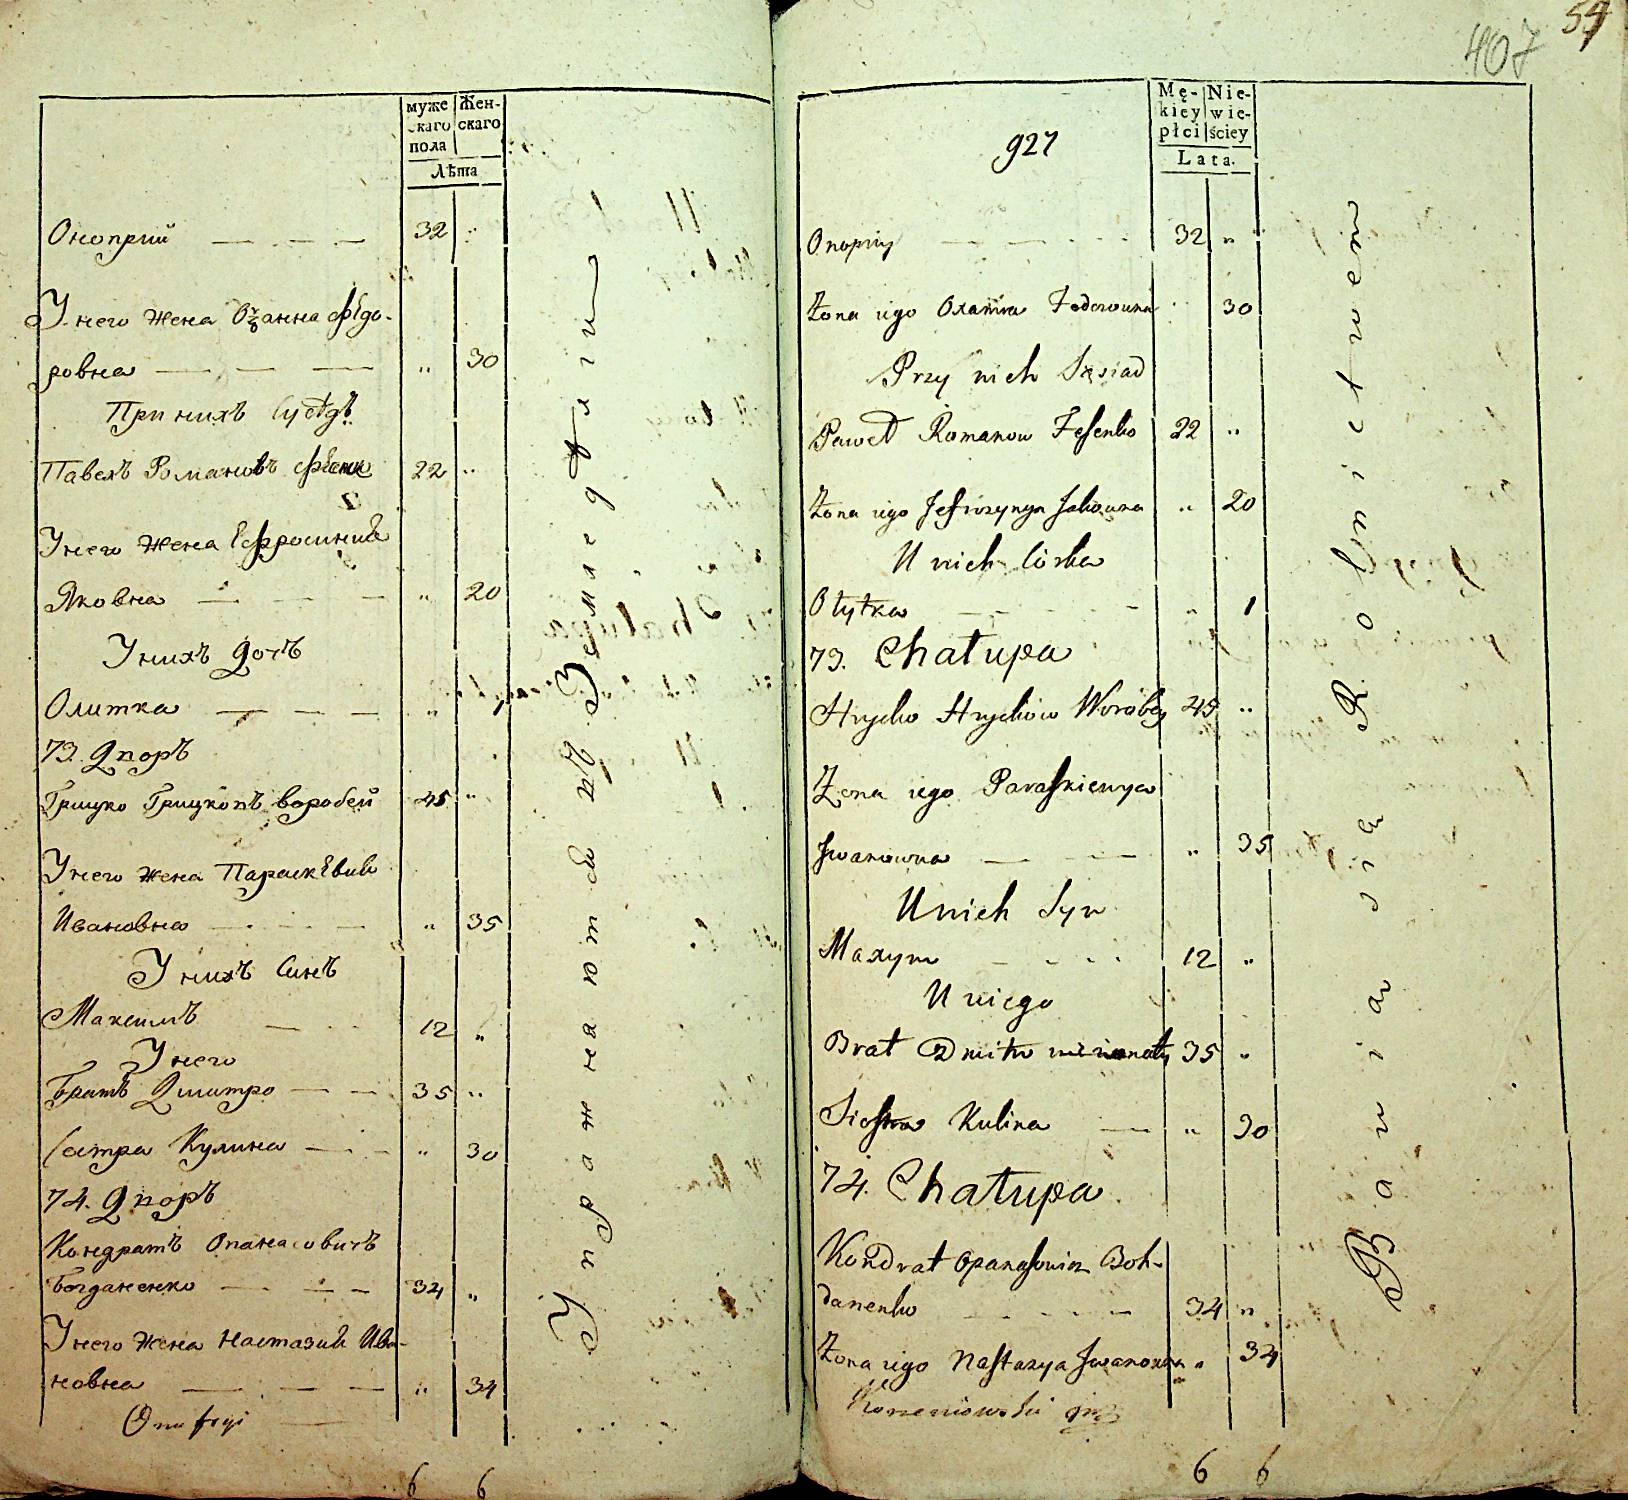 муже Жен-
скаго скаго
пола
Лѣта
Оноприй — — — 32 "
У него жена Оханна Фѣдо-
ровна — — — " 30
При нихъ Сусѣдъ
Павелъ Романовъ 22 "
У него жена Ефросиния
Яковна — — — " 20
У нихъ дочъ
Олитка — — — "
73. Дворъ
Грицко Грицковъ воробей 45 "
У него жена Параскѣвия
Ивановна — — — " 35
У нихъ Синъ
Максимъ — — 12 "
У него
Братъ Дмитро — — 35 "
Сестра Кулина — — " 30
74. Дворъ
Кондратъ Опанасовичъ
Богданенко — — — 34 "
У него жена Настазия Ива-
новна — — — " 34
Onufryi
6 6
Упражнаются въ Земледѣлии
54
407
927
Mę- Nie-
kiey wie-
płci ściey
Lata.
Onopriy — — 32 "
Żona iego Oxanna Fedorowna 30
Przy nich Sąsiad
Paweł Romanow Fesenko 22 "
Żona iego Jefrozynya Jakowna " 20
U nich Córka
Ołytka — — — " 1
73. Chałupa
Hrycko Hryckow Worobey 45 "
Żona iego Paraskiewya
Jwanowna — — " 35
U nich Syn
Maxym — — 12 "
U niego
Brat Dmitro nieżonaty 35 "
Siostra Kulina — " 30
74. Chałupa
Kondrat Opanasowicz Boh-
danenko — — — 34 "
Żona iego Nastazya Jwanowna " 34
Korzeniowski
6 6
Bawią się Rolnictwem